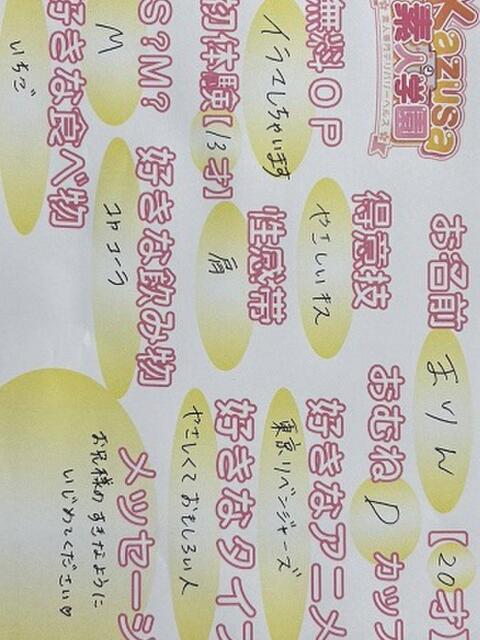 Kazusa
素人学園
素人専門デリバリーヘルス
お名前 まりん 【20才
おむね D カップ
得意技 やさしいキス
好きなアニメ 東京リベンジャーズ
無料OP イラマしちゃいます
初体験【13才】
性感帯 肩
好きなタイプ やさしくておもしろい人
S?M? M
好きな飲み物 コカコーラ
好きな食べ物 いちご
メッセージ
お兄様のすきなように
いじめてください♡